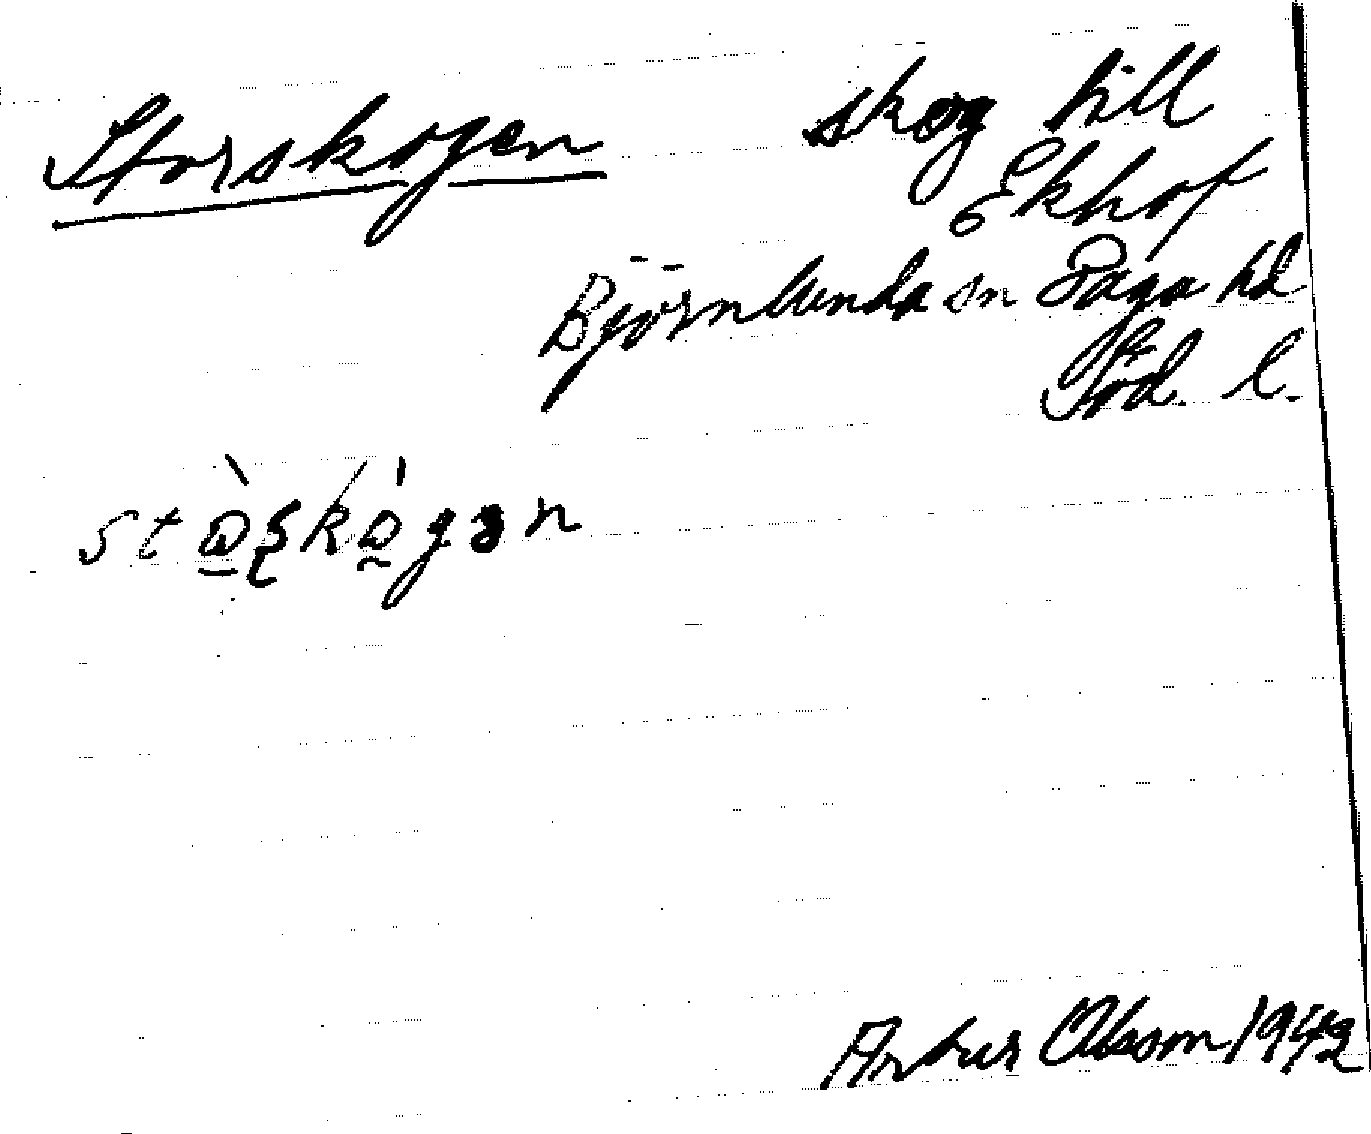 Storskogen skog till
Ekhof
Björnlunda sn Daga hd
Söd. l.
Artur Olsson 1942